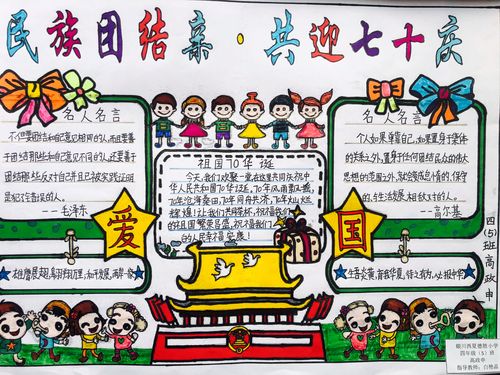 民族团结亲·共迎七十庆
名人名言
不但要团结和自己意见相同的人,而且要善
于团结那些和自己意见不同的人,还要善于
团结那些反对自己并且已被实践证明
是犯了错误的人。
——毛泽东
祖国70华诞
今天,我们欢聚一堂,在这里共同庆祝中
华人民共和国70华诞,70年风雨
70年沧海桑田,70年同舟共济,70年灿烂
辉煌!让我们共同举杯,祝福我们
的祖国繁荣昌盛,祝福我们
的人民幸福安康!
名人名言
个人如果单靠自己,如果置身于集体
的关系之外,置身于任何团结民众的伟大
思想的范围之外,就会变成怠惰的、保守
的、与生活发展相敌对的人。
——高尔基
爱
国
四(5)班高政申
银川西夏德胜小学
四年级(5)班
高政申
指导教师:白艳